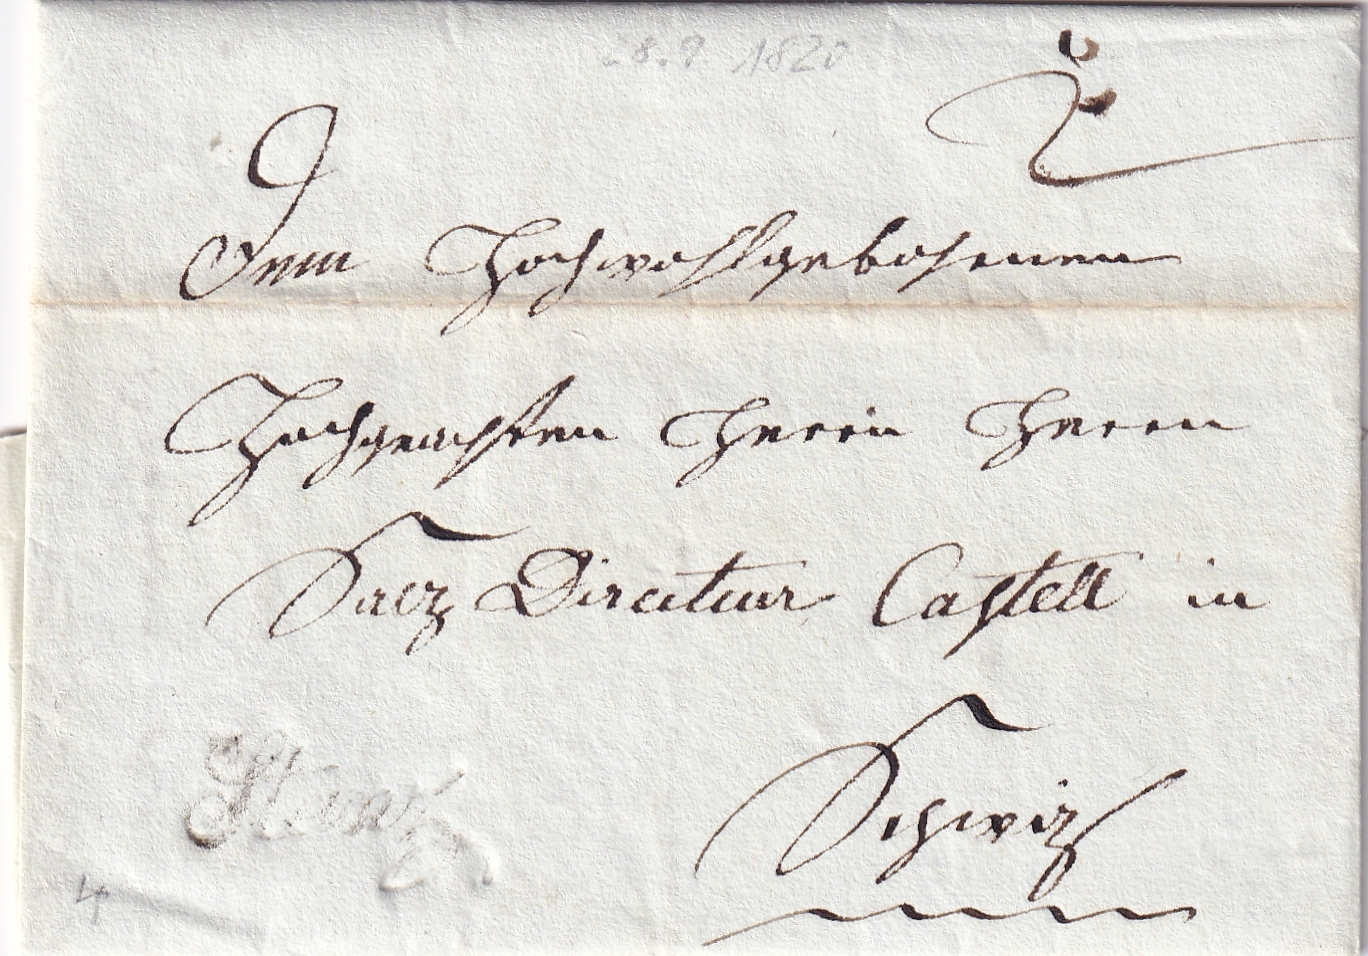 28. 9. 1820
2
Dem Hochwohlgebohrenen
Hochgeachten Herrn Herrn
Salz Directeur Castell in
Stanz
Schwiz
4